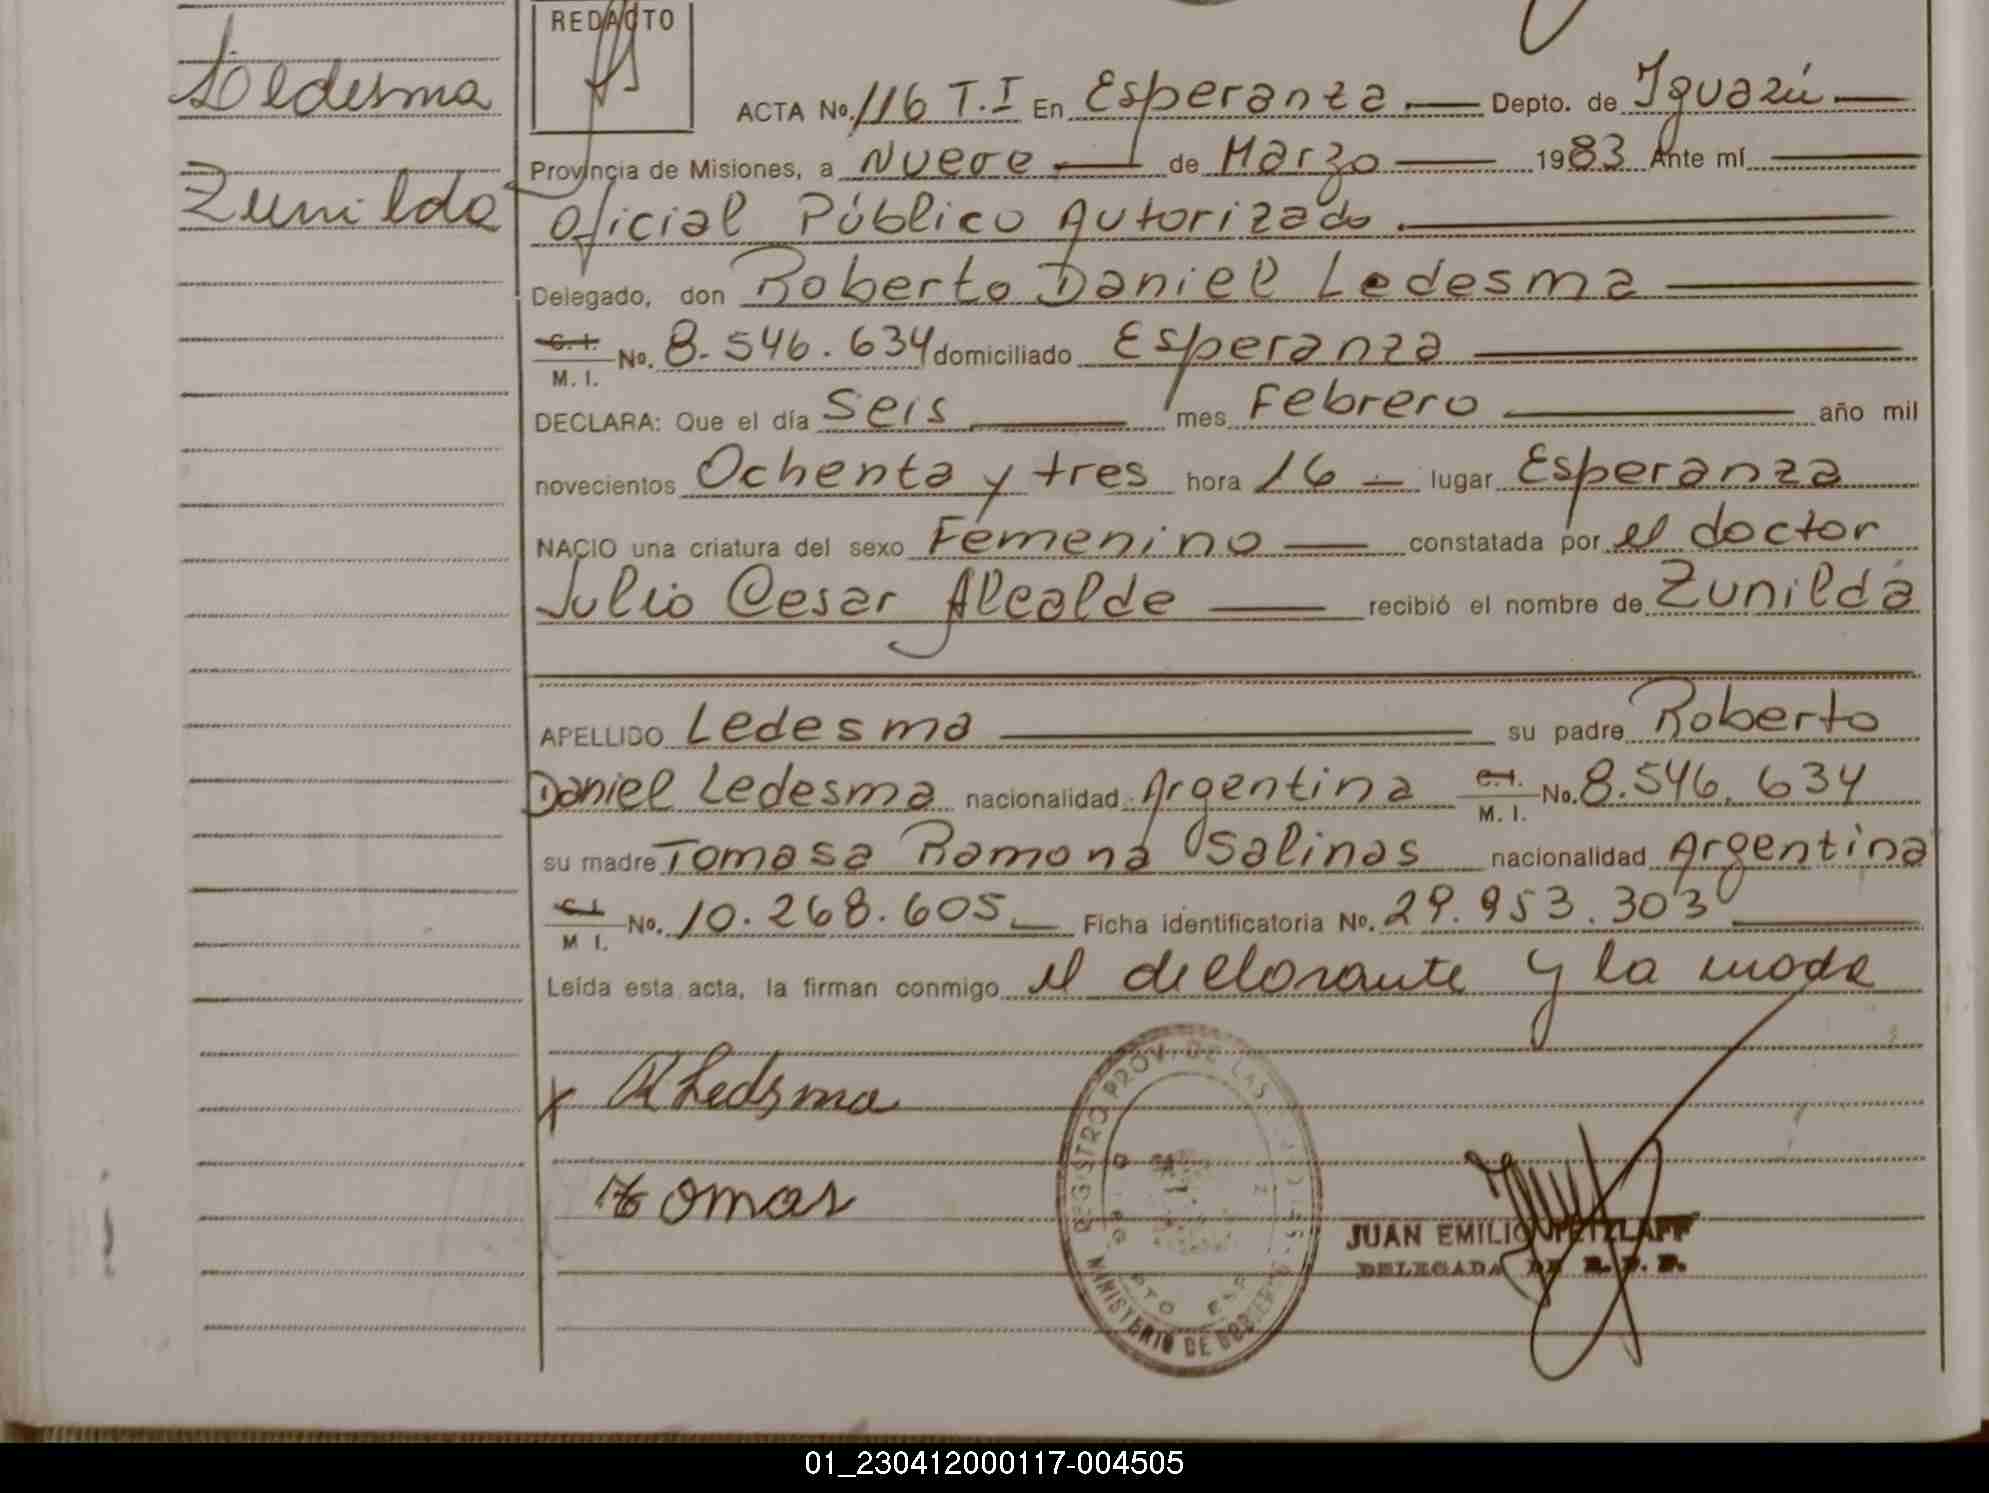 Ledesma
Zunilda
REDACTO
ACTA No. 116 T.I En Esperanza Depto. de Iguazú
Provincia de Misiones, a Nueve de Marzo 1983 Ante mí
Oficial Público Autorizado
Delegado, don Roberto Daniel Ledesma
C. I.
M. I. No. 8.546.634 domiciliado Esperanza
DECLARA: Que el día Seis mes Febrero año mil
novecientos Ochenta y tres hora 16 lugar Esperanza
NACIO una criatura del sexo Femenino constatada por el doctor
Julio Cesar Alcalde recibió el nombre de Zunilda
APELLIDO Ledesma su padre Roberto
Daniel Ledesma nacionalidad Argentina C.I. M. I. No. 8.546.634
su madre Tomasa Ramona Salinas nacionalidad Argentina
C. I.
M I. No. 10.268.605 Ficha identificatoria No. 29.953.303
Leída esta acta, la firman conmigo el declorante y la made
Ledsma
tomas
REGISTRO PROV. DE LAS
MINISTERIO DE GOBIERNO
JUAN EMILIO
DELEGADA DE R. P. P.
01_230412000117-004505